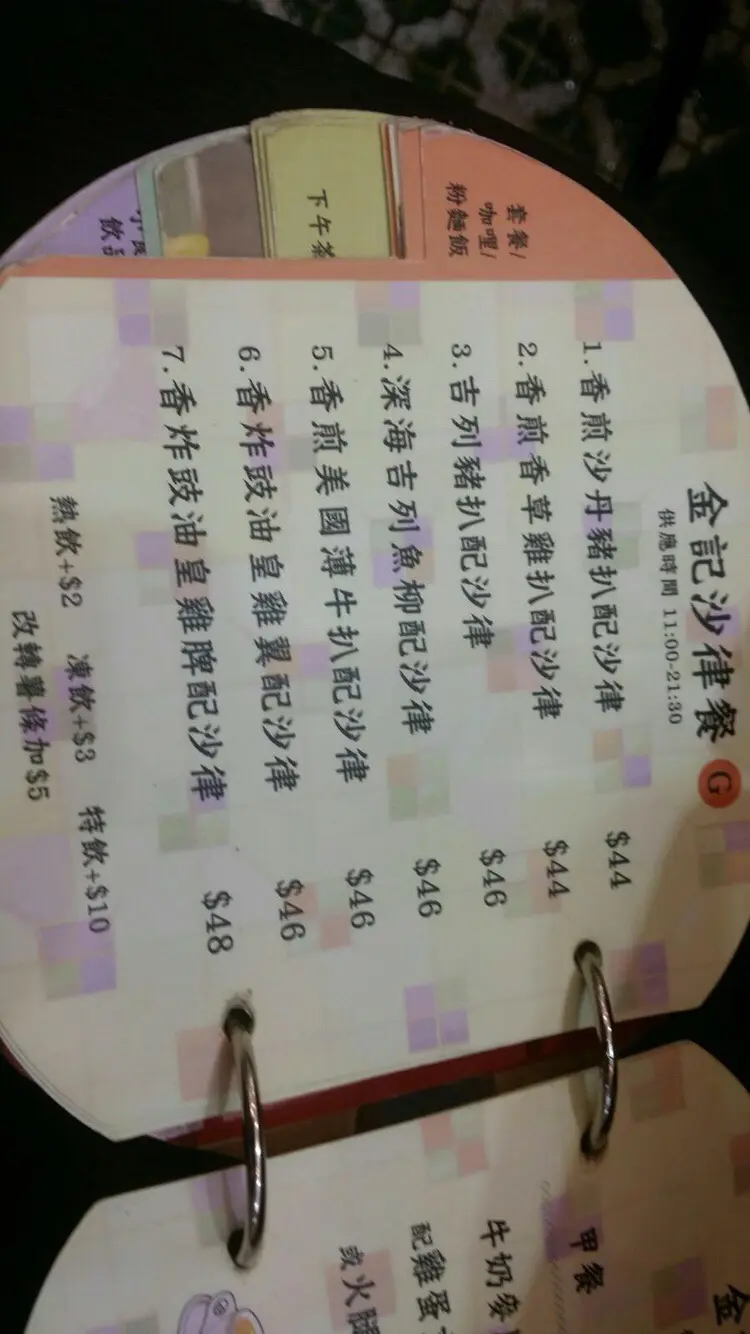 套餐/
咖哩/
粉麵飯
下午茶
金記沙律餐 G
供應時間 11:00-21:30
1.香煎沙丹豬扒配沙律 $44
2.香煎香草雞扒配沙律 $44
3.吉列豬扒配沙律 $46
4.深海吉列魚柳配沙律 $46
5.香煎美國薄牛扒配沙律 $46
6.香炸豉油皇雞翼配沙律 $46
7.香炸豉油皇雞脾配沙律 $48
熱飲+$2 凍飲+$3 特飲+$10
改轉薯條加$5
甲餐
牛奶麥
配雞蛋
或火腿